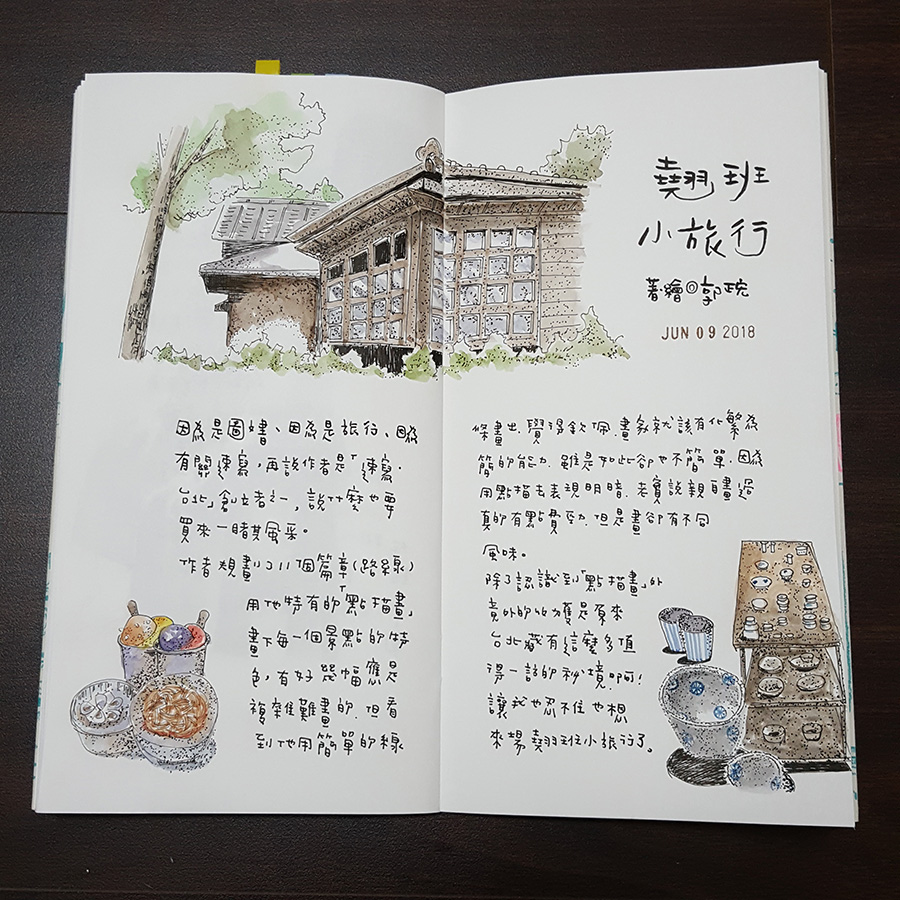 翹班
小旅行
著繪◎郭正宛
JUN 09 2018
因為是圖書、因為是旅行、因為
有關速寫,再說作者是「速寫·
台北」創立者之一,說什麼也要
買來一睹其風采。
作者規畫了11個篇章(路線)
用他特有的「點描畫」
畫下每一個景點的特
色,有好幾幅應是
複雜難畫的,但看
到他用簡單的線
條畫出,覺得欽佩,畫家就該有化繁為
簡的能力,雖是如此卻也不簡單,因為
用點描去表現明暗,老實說親自畫過
真的有點費勁,但是畫卻有不同
風味。
除了認識到「點描畫」外
意外的收獲是原來
台北藏有這麼多值
得一訪的秘境啊!
讓我也忍不住也想
來場翹班小旅行了。